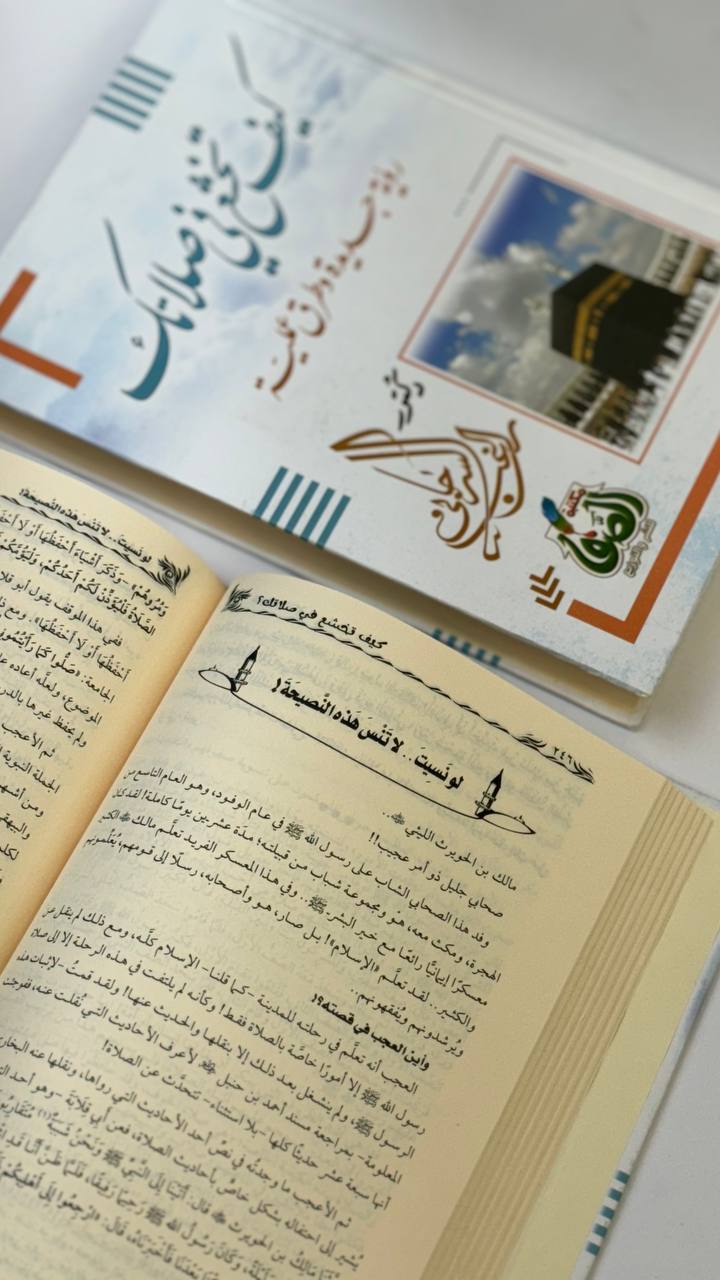 كيف تخشع في صلاتك
رؤية جديدة وطرق عملية
دكتور
راغب السرجاني
مكتبة
الصفا
للنشر والتوزيع
لو نسيت.. لا تنس هذه النصيحة!
وَمُرُوهُمْ» -وَذَكَرَ أَشْيَاءَ أَحْفَظُهَا أَوْ لَا
الصَّلَاةُ فَلْيُؤَذِّنْ لَكُمْ أَحَدُكُمْ، وَلْيَؤُمَّكُمْ
ففي هذا الموقف يقول أبو
أَحْفَظُهَا أَوْ لَا أَحْفَظُهَا».. ومع
الجامعة: «صَلُّوا كَمَا رَأَيْتُمُونِي
الموضوع، ولعلَّه أعاده
ولم يحفظ غيرها
ثم الأعجب
الجملة النبوية
ومن أشهر
والبيهقي
لكل
كيف تخشع في صلاتك؟
٢٤٦
لو نَسِيتَ.. لا تَنْسَ هَذِه النَّصِيحَةَ!
مالك بن الحويرث الليثي ﷺ..
صحابي جليل ذو أمر عجيب!!
وفد هذا الصحابي الشاب على رسول الله ﷺ في عام الوفود، وهو العام التاسع من
الهجرة، ومكث معه، هو ومجموعة شباب من قبيلته؛ مدَّة عشرين يومًا كاملة! لقد كان
معسكرًا إيمانيًّا رائعًا مع خير البشر ﷺ.. وفي هذا المعسكر الفريد تعلَّم مالك الكثير
والكثير.. لقد تعلَّم «الإسلام»! بل صار، هو وأصحابه، رسلًا إلى قومهم، يُعَلِّمونهم
ويُرشدونهم ويُفقهونهم..
وأين العجب في قصته؟!
العجب أنه تعلَّم في رحلته للمدينة -كما قلنا- الإسلام كلَّه، ومع ذلك لم ينقل عن
رسول الله ﷺ إلا أمورًا خاصَّة بالصلاة فقط! وكأنه لم يلتفت في هذه الرحلة إلا إلى صلاة
الرسول ﷺ، ولم ينشغل بعد ذلك إلا بنقلها والحديث عنها! ولقد قمتُ -لإثبات هذه
المعلومة- بمراجعة مسند أحمد بن حنبل لأعرف الأحاديث التي نُقلت عنه، فوجدت
أنها سبعة عشر حديثًا كلها -بلا استثناء- تتحدَّث عن الصلاة!
ثم الأعجب ما وجدتُه في نصِّ أحد الأحاديث التي رواها، ونقلها عنه البخاري
يُشير إلى احتفاله بشكل خاصٍّ بأحاديث الصلاة، فعن أبي قلابة -وهو أحد
مَالِكُ بن الحويرث قال: أَتَيْنَا إِلَى النَّبِيِّ ﷺ وَنَحْنُ شَبَبَةٌ(١) مُتَقَارِبُونَ
وَكَانَ رَسُولُ اللهِ ﷺ رَحِيمًا رَفِيقًا، فَلَمَّا ظَنَّ أَنَّا قَدِ
فَأَخْبَرْنَاهُ، قَالَ: «ارْجِعُوا إِلَى أَهْلِيكُمْ